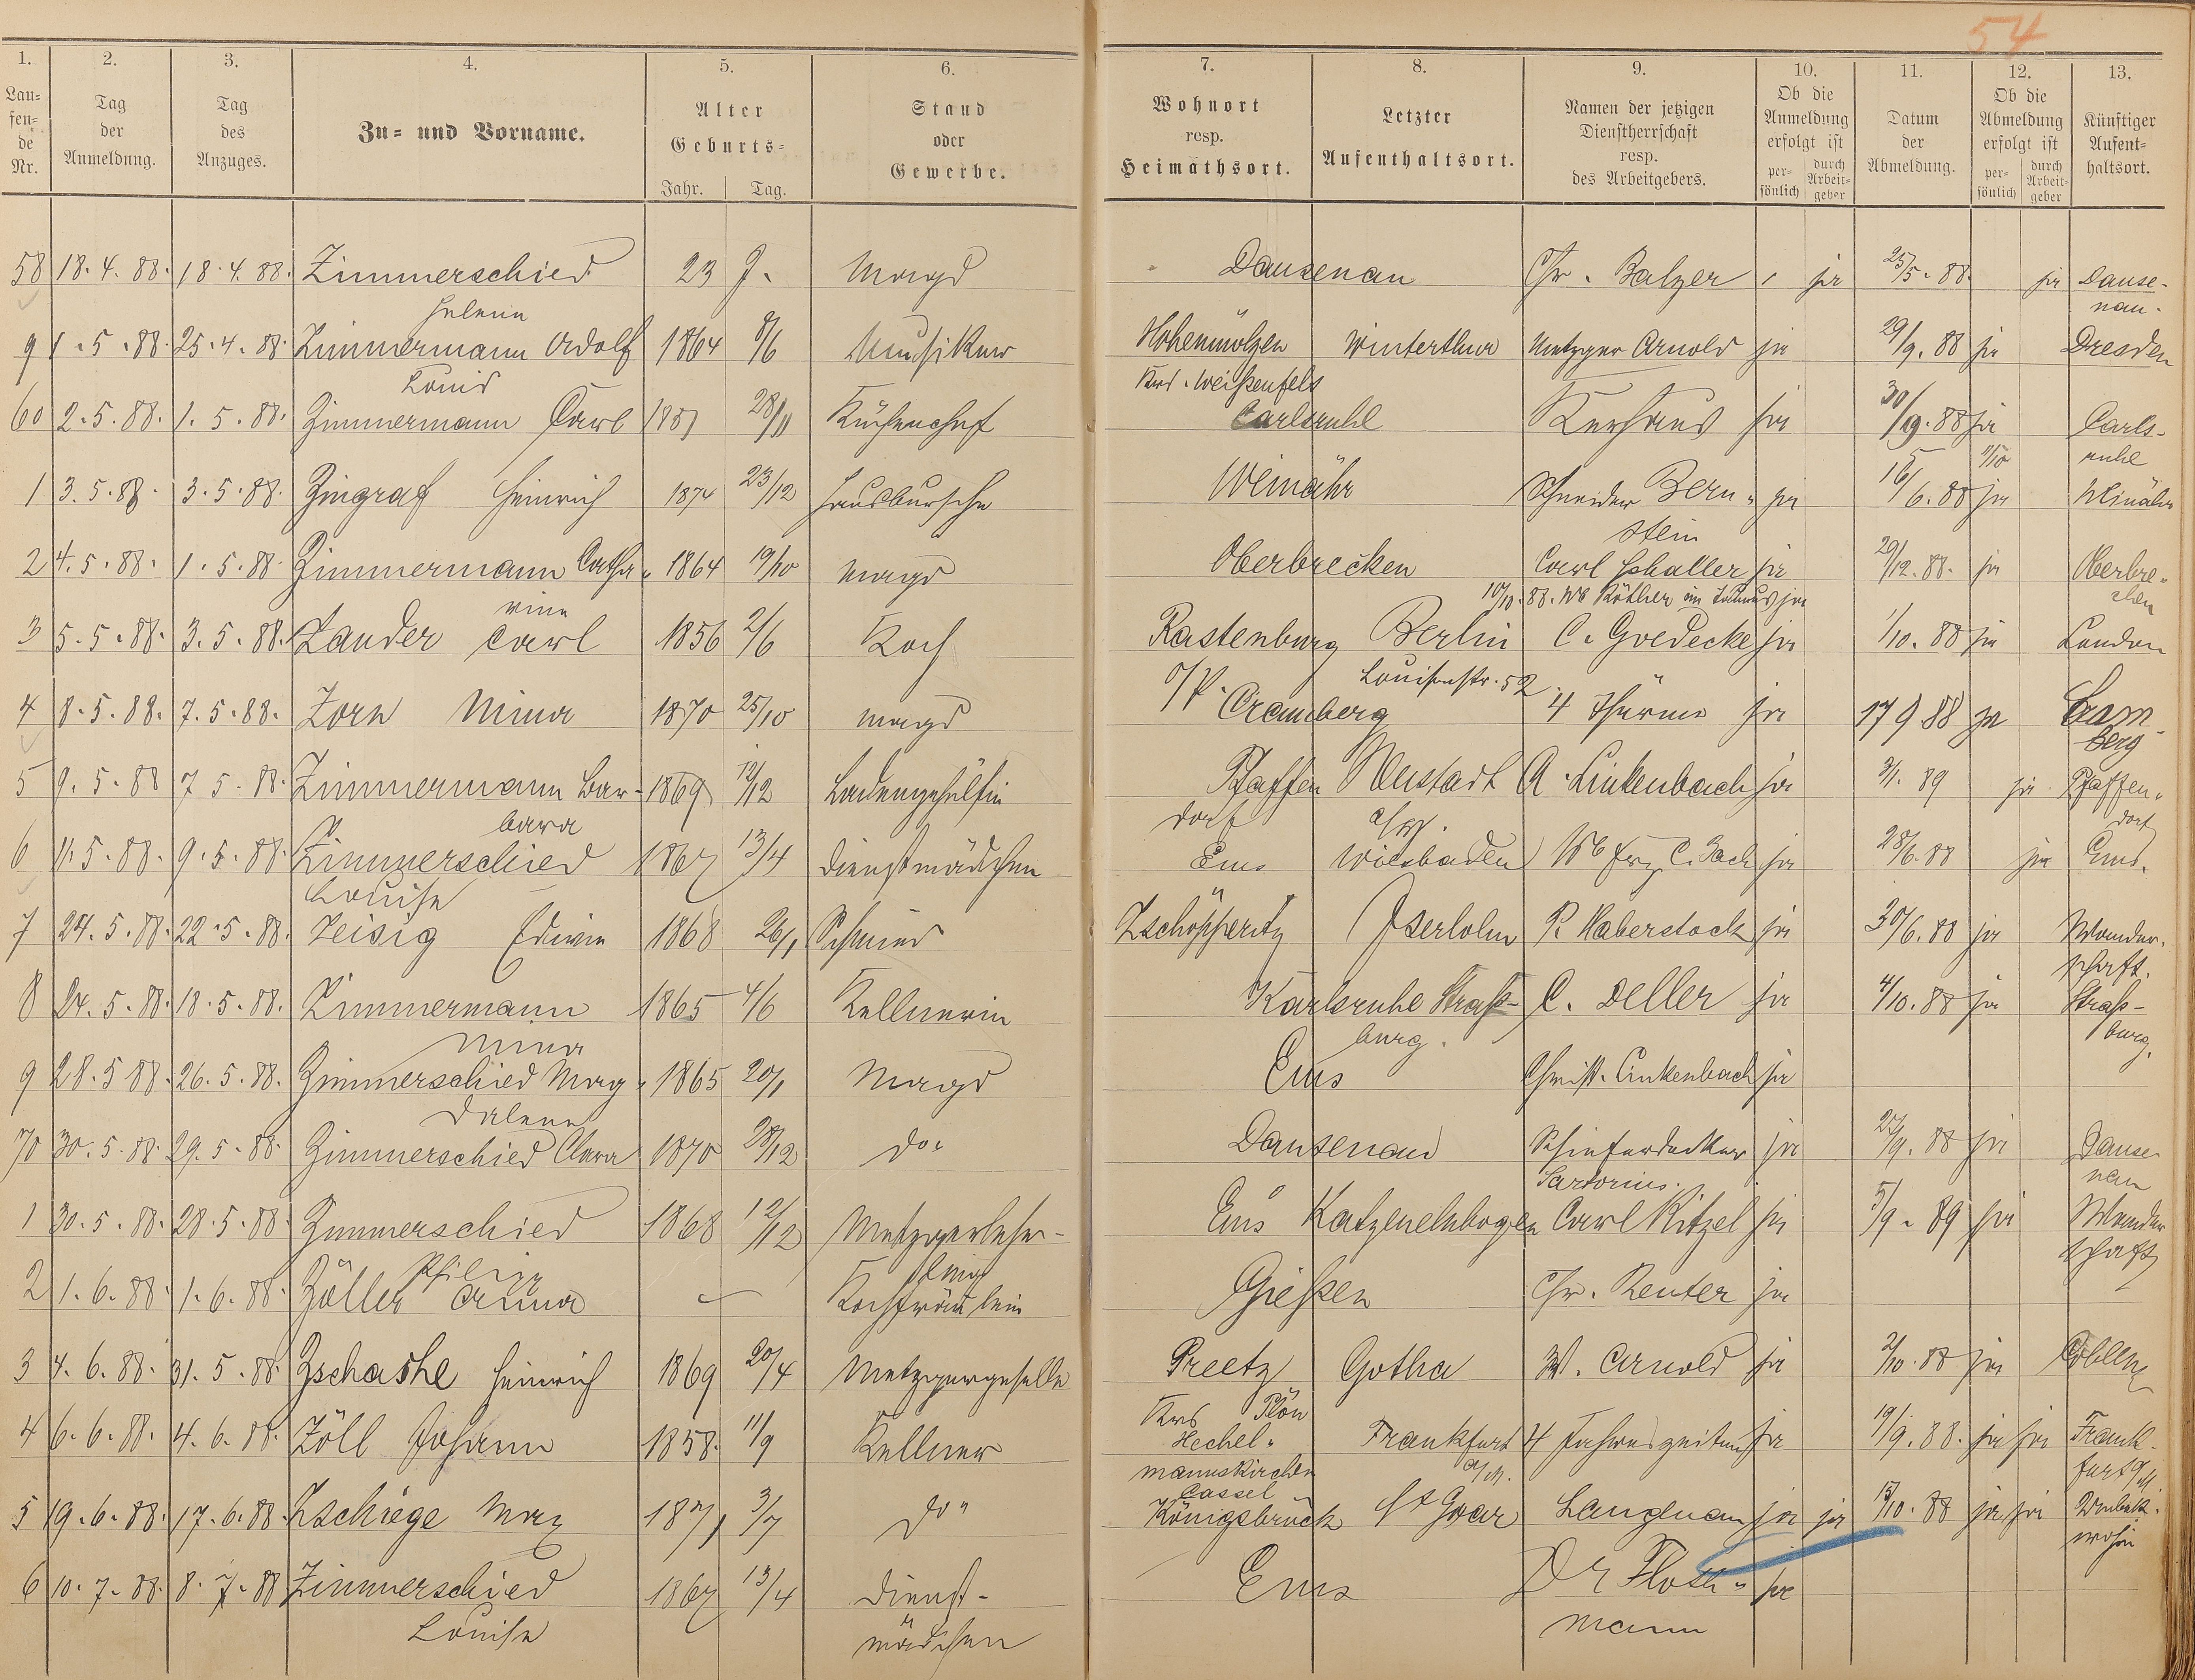 54
1. 2. 3. 4. 5. 6. 7. 8. 9. 10. 11. 12. 13.
Laufende Nr. Tag der Anmeldung. Tag des Anzuges. Zu- und Vorname. Alter Geburts- Jahr. Tag. Stand oder Gewerbe. Wohnort resp. Heimathsort. Letzter Aufenthaltsort. Namen der jetzigen Dienstherrschaft resp. des Arbeitgebers. Ob die Anmeldung erfolgt ist persönlich durch Arbeitgeber Datum der Abmeldung. Ob die Abmeldung erfolgt ist persönlich durch Arbeitgeber Künftiger Aufenthaltsort.
58 18.4.88. 18.4.88. Zimmerschied 23 J. Magd Dausenau Chr. Balzer ja 25/5.88. ja Dause-
Helene nau.
9 1.5.88. 25.4.88. Zimmermann Adolf 1864 8/6 Musiker Hohenmölsen Winterthur Metzger Arnold ja 29/9.88 ja Dresden
Louis Krs. Weißenfels
60 2.5.88. 1.5.88. Zimmermann Carl 28/11 Küchenchef Carlsruhe Kurhaus ja 30/9.88 ja Carls-
ruhe
1 3.5.88. 3.5.88. Zingraf Heinrich 1874 23/12 Hausbursche Weinähr Schneider Bern- ja 16/6.88 ja Weinähr
stein
2 4.5.88. 1.5.88. Zimmermann Catha- 1864 19/10 Magd Oberbrecken Carl Schaller ja 29/12.88. ja Oberbre-
rine 10/10.88. Köhler im ja chen
3 5.5.88. 3.5.88. Zander Carl 1856 2/6 Koch Rastenburg Berlin C. Goedecke ja 1/10.88 ja London
o/P. Louisenstr. 52
4 8.5.88. 7.5.88. Zorn Mina 1870 25/10 Magd Cramberg 4 Thürme ja 17 9 88 ja
berg
5 9.5.88 7 5.88. Zimmermann Bar- 1869 Ladengehülfin Pfaffen Neustadt A. Linkenbach ja 3/1.89 ja Pfaffen-
bara dorf dorf
6 11.5.88. 9.5.88. Zimmerschied 1867 13/4 Dienstmädchen Ems Wiesbaden C. Bach ja 28/6.88 ja Ems.
Louise
7 24.5.88. 22.5.88. Zeisig Edwin 1868 26/1 Schmied Zschöpperitz Iserlohn P. Haberstock ja 30/6.88 ja Wander-
schaft.
8 24.5.88. 18.5.88. Zimmermann 1865 4/6 Kellnerin Karlsruhe Straß- C. Deller ja 4/10.88 ja Straß-
Mina burg. burg.
9 28.5 88. 26.5.88. Zimmerschied Mag- 1865 20/1 Magd Ems Christ. Linkenbach ja
dalena
70 30.5.88. 29.5.88. Zimmerschied Clara 1870 28/12 do. Dausenau Schieferdecker ja 27/9.88 ja Dause-
Sartorius. nau
1 30.5.88. 28.5.88. Zimmerschied 1868 12/12 Metzgerlehr- Ems Katzenelnbogen Carl Kitzel ja 5/9.89 ja Wander
Philipp ling schaft
2 1.6.88. 1.6.88. Zöller Anna Kochfräulein Gießen Chr. Reuter ja
3 4.6.88. 31.5.88. Zschashe Heinrich 1869 20/4 Metzgergeselle Preetz Gotha W. Arnold ja 2/10.88 ja Coblenz
Krs Plön
4 6.6.88. 4.6.88. Zöll Johann 1858. 11/9 Kellner Hechel- Frankfurt 4 Jahreszeiten ja 19/9.88. ja ja Frank-
mannskirchen a/M. furt a/M
Cassel
5 19.6.88. 17.6.88. Zschiege Max 3/7 do. Königsbrück St Goar Langenau ja ja 15/10.88 ja ja Unbek.
wohin
6 10.7.88. 8.7.88 Zimmerschied 1867 13/4 Dienst- Ems Dr Floth- ja
Louise mädchen mann